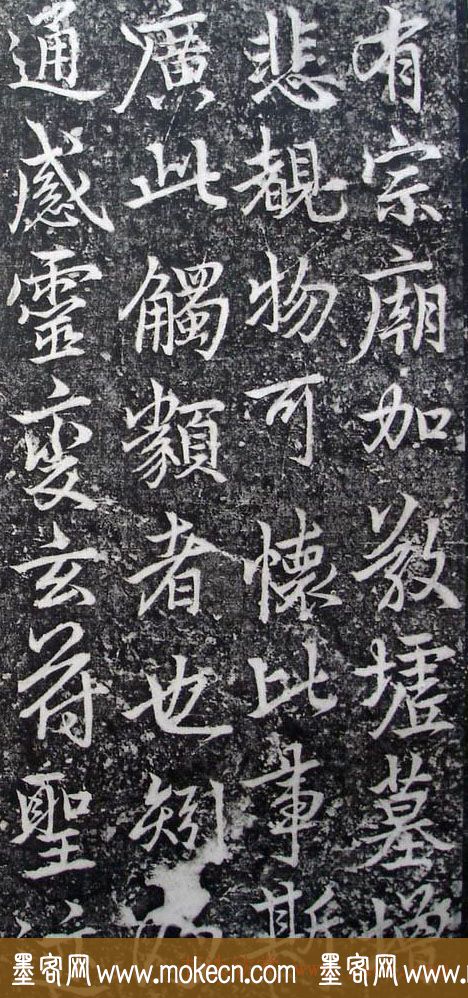 有宗廟加敬墟墓增
悲覩物可懷此事斯
廣此觸類者也矧
通感靈變玄符聖
墨客网 www.mokecn.com 墨客网 www.mokecn.com